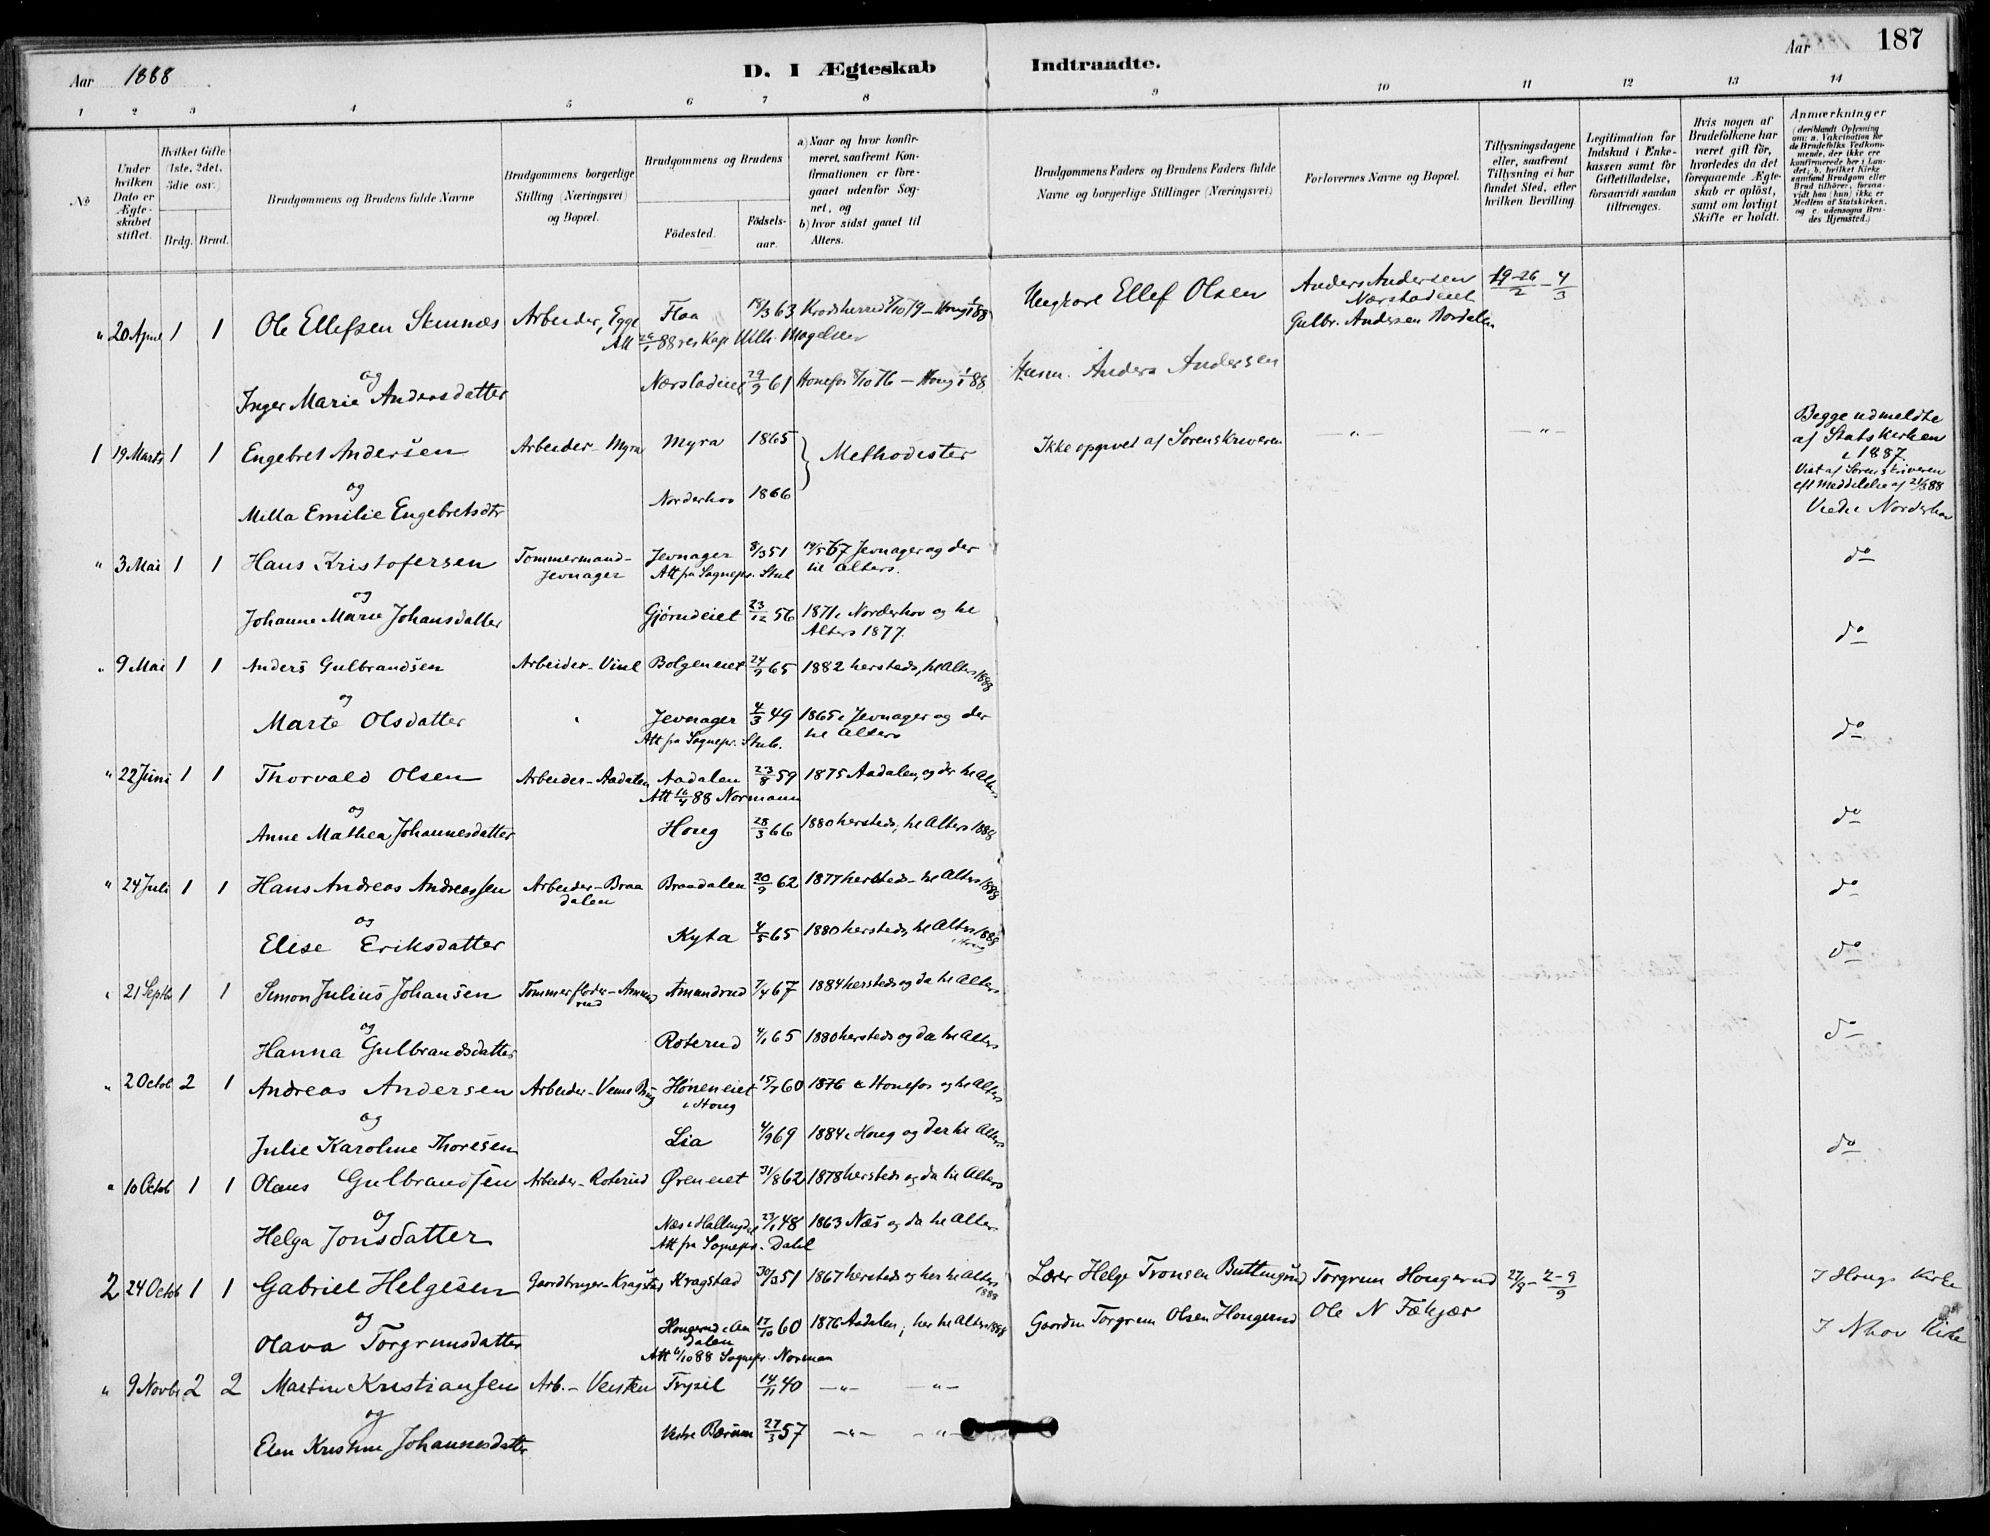 Aar 1888
D. I Ægteskab Indtraadte.
Aar 187
1 2 3 4 5 6 7 8 9 10 11 12 13 14
№
Under hvilken Dato er Ægteskabet stiftet.
Hvilket Gifte (1ste, 2det, 3die osv.)
Brdg. Brud.
Brudgommens og Brudens fulde Navne
Brudgommens borgerlige Stilling (Næringsvei) og Bopæl.
Brudgommens og Brudens
Födested. Födsels-aar.
a) Naar og hvor konfirmeret, saafremt Konfirmationen er foregaaet udenfor Sognet, og
b) hvor sidst gaaet til Alters.
Brudgommens Faders og Brudens Faders fulde Navne og borgerlige Stillinger (Næringsvei)
Forlovernes Navne og Bopæl.
Tillysningsdagene eller, saafremt Tillysning ei har fundet Sted, efter hvilken Bevilling.
Legitimation for Indskud i Enkekassen samt for Giftetilladelse, forsaavidt saadan tiltrænges.
Hvis nogen af Brudefolkene har været gift för, hvorledes da det foregaaende Ægteskab er oplöst, samt om lovligt Skifte er holdt.
Anmærkninger
(deriblandt Oplysning om: a. Vakcination for de Brudefolks Vedkommende, der ikke ere konfirmerede her i Landet; b. hvilket Kirkesamfund Brudgom eller Brud tilhörer, forsaavidt han (hun) ikke er Medlem af Statskirken, og c. udensogns Brudes Hjemsted.)
" 20 April 1 1 Ole Ellefsen Skinnæs Arbeider, Egge Flaa 18/3 63 Krodsherred 5/10 79 – Houg 1/1 88 Ellef Olsen Anders Andersen Nærstadeiet 19-26/2 – 4/3
Att 26/1 88 res Kap Vilh. Magelssen
Gulbr. Andersen Hordalen
og
Inger Marie Andersdatter Nærstadeiet 29/9 61 Honefos 8/10 76 – Houg 1/1 88 Husm. Anders Andersen
1 19 Marts 1 1 Engebret Andersen Arbeider – Myra Myra 1865 Methodister Ikke opgivet af Sorenskriveren – " – – " –
Begge udmeldte af Statskirken i 1887.
Viet af Sorenskriveren eft meddelelse af 21/3 88
og
Milla Emilie Engebretsdtr Norderhov 1866
Viede i Norderhov
" 3 Mai 1 1 Hans Kristofersen Tommermand – Jevnager Jevnager 8/3 51 19/5 67 Jevnager og der til Alters. do
Att fra Sognepr. Stub
og
Johanne Marie Johansdatter Gjörudeiet 23/12 56 1871 i Norderhov og til Alters 1877. do
" 9 Mai 1 1 Anders Gulbrandsen Arbeider – Vind Bolgeneiet 24/9 65 1882 hersteds, til Alters 1888
og
Marte Olsdatter " Jevnager 4/3 49 1865 i Jevnager og der til Alters do
Att fra Sognepr. Stub.
" 22 Juni 1 1 Thorvald Olsen Arbeider – Aadalen Aadalen 23/8 59 1875 Aadalen, og der til Alters
Att 16/4 88 Normann
og
Anne Mathea Johannesdatter Houg 28/3 66 1880 hersteds, til Alters 1888 do
" 24 Juli 1 1 Hans Andreas Andreassen Arbeider – Braadalen Braadalen 20/9 62 1877 hersteds – til Alters 1888 do
og
Elise Eriksdatter Kyta 4/5 65 1880 hersteds, til Alters 1888 i Houg do
" 21 Septb 1 1 Simon Julius Johansen Tommerfloder – Amundrud Amundrud 7/4 67 1884 hersteds og da til Alters
og
Hanna Gulbrandsdatter Roterud 4/1 65 1880 hersteds og da til Alters do
" 2 Octob 2 1 Andreas Andersen Arbeider – Veme Brug Höneneiet i Houg 15/7 60 1876 i Honefos og til Alters
og
Julie Karoline Thoresen Lia 4/9 69 1884 i Houg og der til Alters do
" 10 Octob 1 1 Olaus Gulbrandsen Arbeider – Roterud Öreneiet 31/8 62 1878 hersteds og da til Alters
og
Helga Jonsdatter Næs i Hallingdal 23/1 48 1863 Næs og da til Alters
Att fra Sognepr. Dahl
2 24 Octob 1 1 Gabriel Helgesen Gaardbruger – Kragstad Kragstad 30/3 51 1867 hersteds og her til Alters 1888 Lærer Helge Tronsen Buttingsrud Torgrim Hougerud 27/8 – 2-9/9 I Hougs Kirke
og
Olava Torgrimsdatter Hougerud i Aadalen 17/10 60 1876 Aadalen; her til Alters 1888 Gaardm Torgrim Olsen Hougerud Ole N Fækjær I Nhov Kirke
Att 6/10 88 Sognepr. Norman
" 9 Novbr 2 2 Martin Kristiansen Arb. – Vensten Trysil 14/11 40 – " – – " –
og
Elen Kristine Johannesdatter Vestre Bærum 27/3 57 – " – – " –